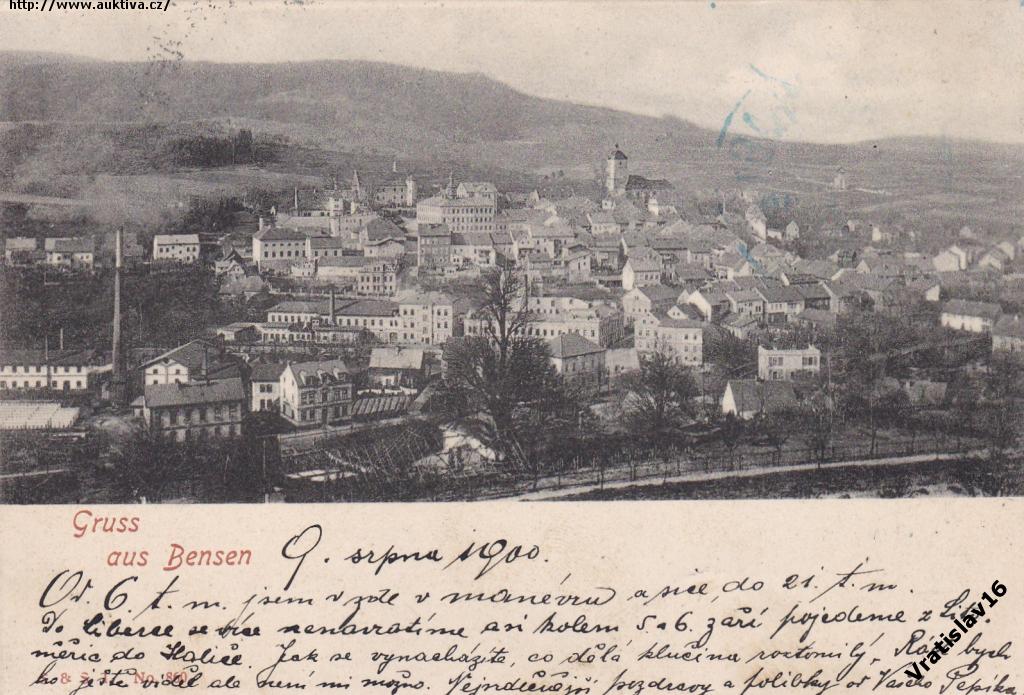 http://www.auktiva.cz/
Gruss
aus Bensen
9. srpna 1900.
Od. 6. t. m. jsem v zde v manévru a sice do 21. t. m.
Do Liberce se více nenavrátíme asi kolem 5 a 6. září pojedeme z Lito-
měřic do Haliče. Jak se vynacházíte, co dělá klučina roztomilý, Rád bych
ho ještě viděl ale není mi možno. Nejsrdečnější pozdravy a polibky od Vašeho Pepíka
& S. No. 860
Vratislav16